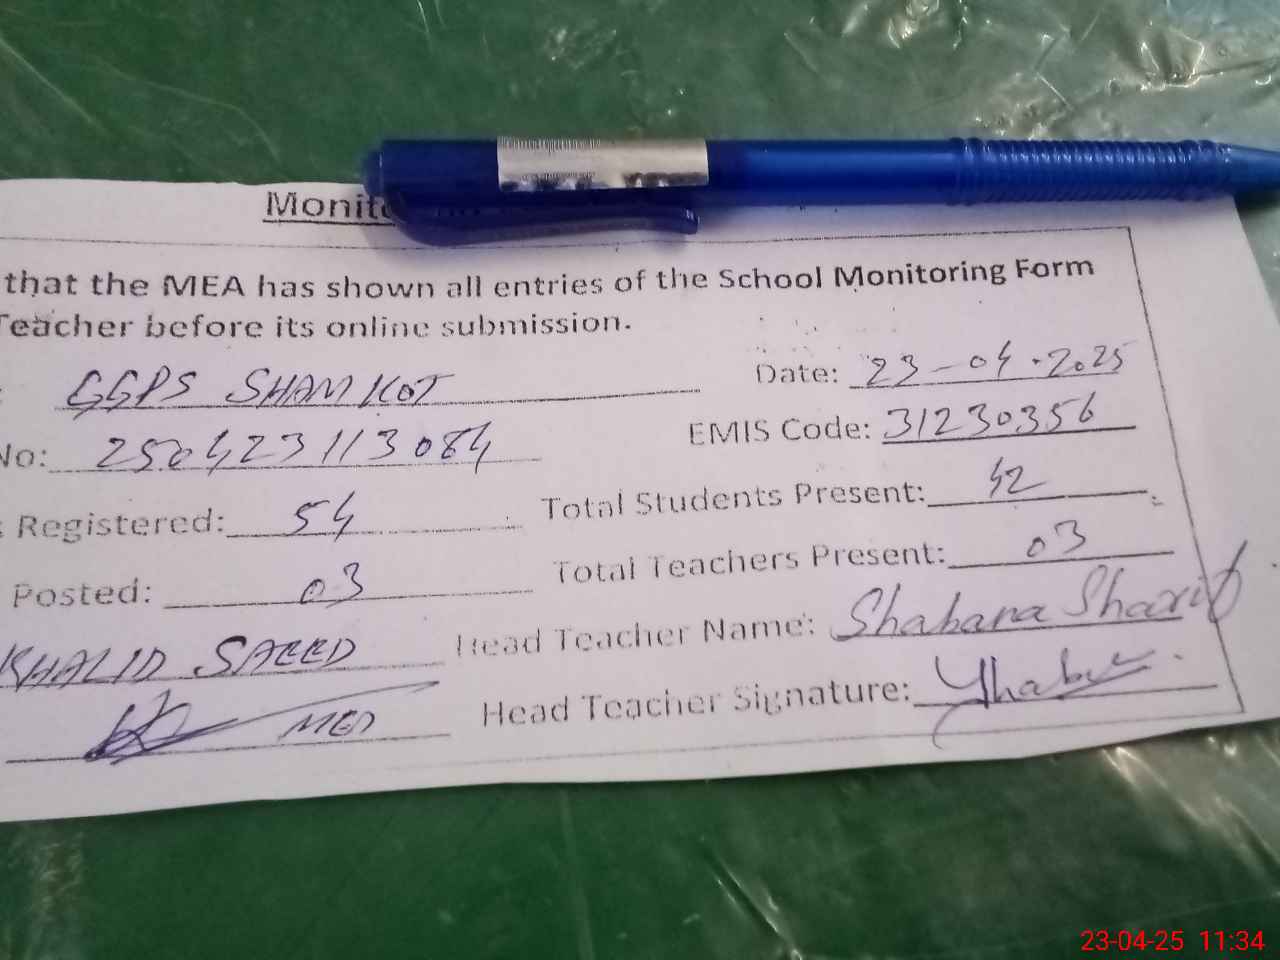 that the MEA has shown all entries of the School Monitoring Form
Teacher before its online submission.
GGPS SHAMKOT Date: 23-04-2025
No: 250423113084 EMIS Code: 31230356
Registered: 54 Total Students Present: 42
Posted: 03 Total Teachers Present: 03
KHALID SAEED Head Teacher Name: Shabana Sharif
Head Teacher Signature:
23-04-25 11:34